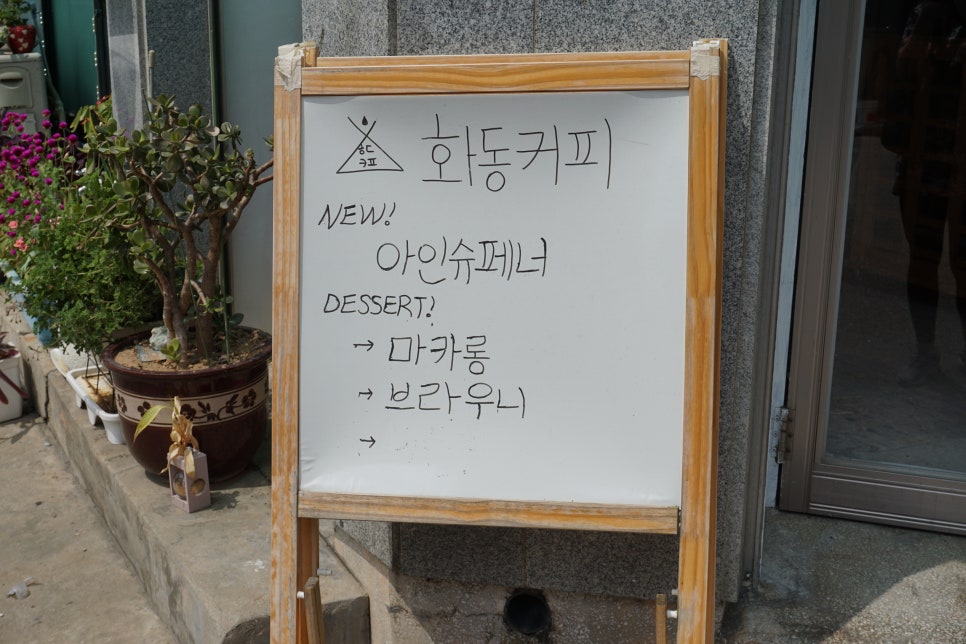 화동커피
NEW!
아인슈페너
DESSERT!
→ 마카롱
→ 브라우니
→